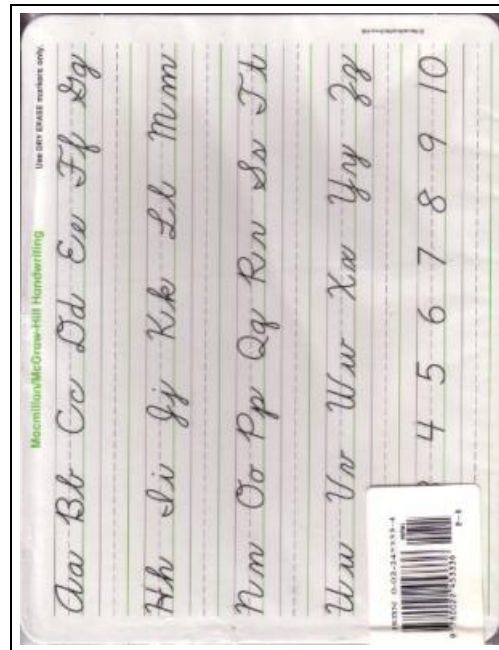 Macmillan/McGraw-Hill Handwriting
Use DRY ERASE markers only.
Aa Bb Cc Dd Ee Ff Gg
Hh Ii Jj Kk Ll Mm
Nn Oo Pp Qq Rr Ss Tt
Uu Vv Ww Xx Yy Zz
4 5 6 7 8 9 10
ISBN